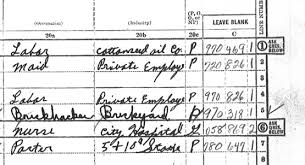 (Occupation) (Industry) LEAVE BLANK
20a 20b 20c C
LINE NUMBER
Labor Cottonseed oil Co. P 970 469 1 1 ASK QUES. BELOW
Maid Private Employe P 720 826 1 2
3
Labor Private Employe P 970 826 1 4
Brickhacker Brickyard P 970 318 1 5
Nurse City Hospital G 058 869 2 6 ASK QUES. BELOW
Porter 5 + 10¢ Store P 780 647 1 7